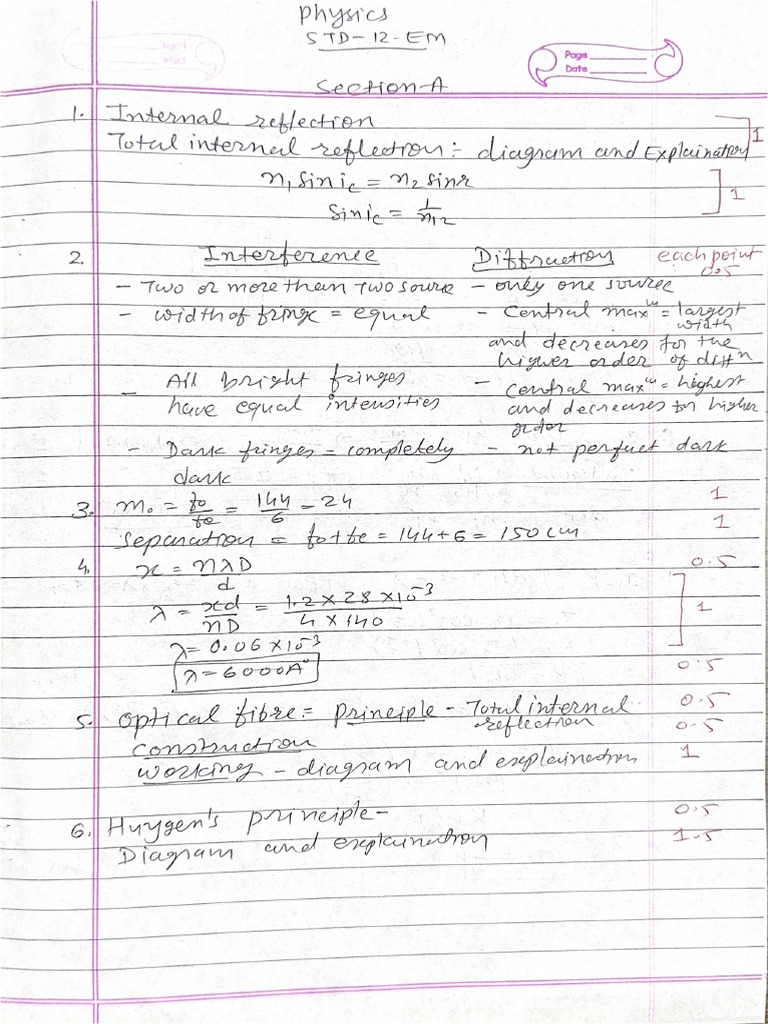 Physics
STD-12-EM
Page
Date
Section-A
1. Internal reflection
Total internal reflection:- diagram and Explaination 1
n₁ sin i_c = n₂ sin r
sin i_c = 1/n₁₂ 1
2. Interference Diffraction each point 0.5
- Two or more than two source - only one source
- width of fringe = equal - Central max^m = largest width
and decreases for the
higher order of diff^n
- All bright fringes - Central max^m = highest
have equal intensities and decreases for higher
order
- Dark fringes - completely - not perfuct dark
dark
3. m₀ = fo/fe = 144/6 = 24 1
Separation = fo+fe = 144+6 = 150 cm 1
4. x = nλD/d 0.5
λ = xd/nD = 1.2 × 28 × 10⁻³/4 × 140 1
λ = 0.06 × 10⁻³
λ = 6000A° 0.5
5. Optical fibre = Principle - Total internal 0.5
reflection 0.5
Construction
Working - diagram and explaination 1
6. Huygen's principle- 0.5
Diagram and explaination 1.5